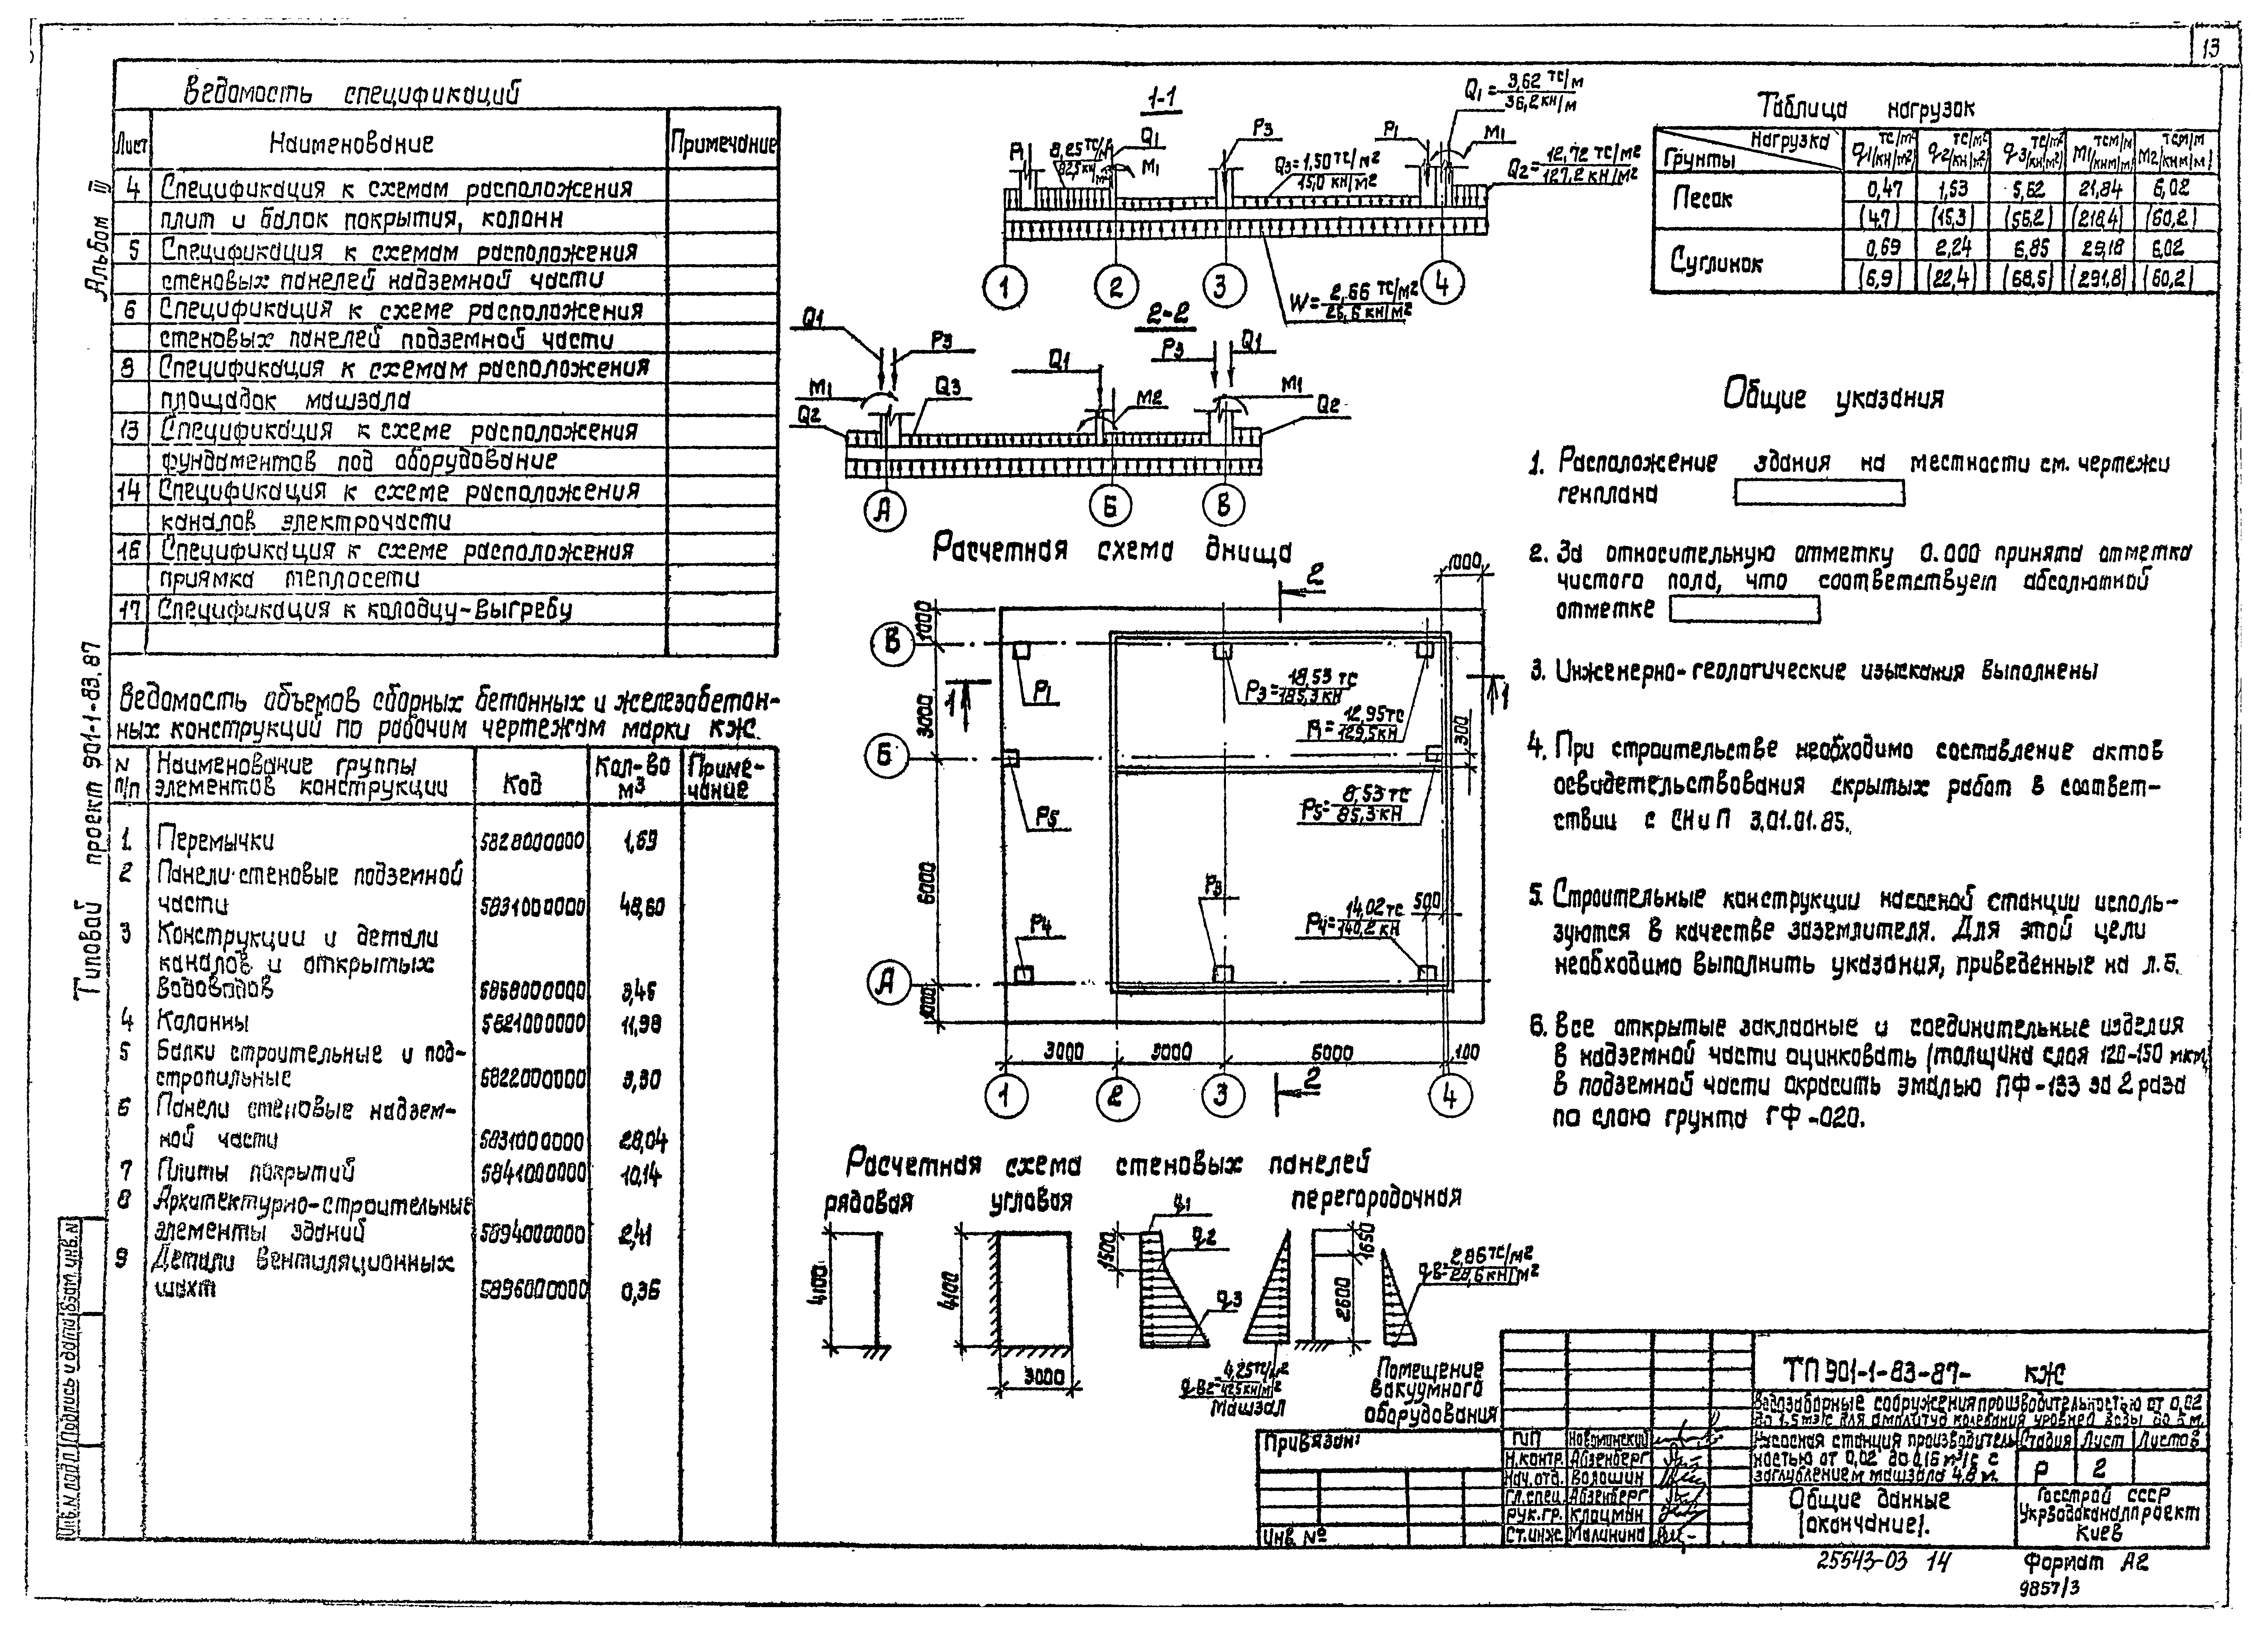 13
Альбом III
Типовой проект 901-1-83.87
Ведомость спецификаций
Лист Наименование Примечание
4 Спецификация к схемам расположения
плит и балок покрытия, колонн
5 Спецификация к схемам расположения
стеновых панелей надземной части
6 Спецификация к схеме расположения
стеновых панелей подземной части
9 Спецификация к схемам расположения
площадок машзала
13 Спецификация к схеме расположения
фундаментов под оборудование
14 Спецификация к схеме расположения
каналов электрочасти
16 Спецификация к схеме расположения
приямка теплосети
17 Спецификация к колодцу-выгребу
Ведомость объемов сборных бетонных и железобетон-
ных конструкций по рабочим чертежам марки КЖ.
N п/п Наименование группы элементов конструкции Код Кол-во м3 Приме-чание
1 Перемычки 5828000000 1,69
2 Панели стеновые подземной
части 5831000000 48,60
3 Конструкции и детали
каналов и открытых
водоводов 5858000000 3,46
4 Колонны 5821000000 11,98
5 Балки строительные и под-
стропильные 5822000000 3,30
6 Панели стеновые надзем-
ной части 5831000000 28,04
7 Плиты покрытий 5841000000 10,14
8 Архитектурно-строительные
элементы зданий 5894000000 2,41
9 Детали вентиляционных
шахт 5896000000 0,36
1-1
Q1= 3,62 тс/м
36,2 кн/м
P1 Q1 M1 P3 P1 M1
Q3= 1,50 тс/м2
15,0 кн/м2
Q2= 12,72 тс/м2
127,2 кн/м2
1 2 3 4
W= 2,66 тс/м2
26,6 кн/м2
2-2
Q1 P3 Q1 P3 Q1
M1 Q3 M2 M1
Q2 Q2
А Б В
Расчетная схема днища
2 1000
В 1000
P1
P3= 18,53 тс
185,3 кн
1 1
P1= 12,95 тс
129,5 кн
3000 300
Б
P5
P5= 8,53 тс
85,3 кн
6000
P3 500
P4
P4= 14,02 тс
140,2 кн
А 1000
3000 3000 6000 100
1 2 3 4
2
Расчетная схема стеновых панелей
рядовая угловая перегородочная
4100 4100 3000
q1 q2 q3 1500
1650 2600
qв= 2,86 тс/м2
28,6 кн/м2
qв2= 4,25 тс/м2
42,5 кн/м2
Машзал
Помещение
вакуумного
оборудования
Таблица нагрузок
Нагрузка Грунты q1 тс/м2 (кн/м2) q2 тс/м2 (кн/м2) q3 тс/м2 (кн/м2) M1 тсм/м (кнм/м) M2 тсм/м (кнм/м)
Песок 0,47 1,53 5,62 21,84 6,02
(4,7) (15,3) (56,2) (218,4) (60,2)
Суглинок 0,69 2,24 6,85 29,18 6,02
(6,9) (22,4) (68,5) (291,8) (60,2)
Общие указания
1. Расположение здания на местности см. чертежи
генплана
2. За относительную отметку 0.000 принята отметка
чистого пола, что соответствует абсолютной
отметке
3. Инженерно-геологические изыскания выполнены
4. При строительстве необходимо составление актов
освидетельствования скрытых работ в соответ-
ствии с СНиП 3.01.01.85.
5. Строительные конструкции насосной станции исполь-
зуются в качестве заземлителя. Для этой цели
необходимо выполнить указания, приведенные на л. 6.
6. Все открытые закладные и соединительные изделия
в надземной части оцинковать (толщина слоя 120-150 мкм,
в подземной части окрасить эмалью ПФ-133 за 2 раза
по слою грунта ГФ-020.
ТП 901-1-83-87- КЖ
Водозаборные сооружения производительностью от 0,02
до 1,5 м3/с для амплитуд колебания уровней воды до 6 м.
Насосная станция производитель-
ностью от 0,02 до 0,15 м3/с с
заглублением машзала 4,8 м.
Стадия Лист Листов
Р 2
Общие данные
(окончание).
Госстрой СССР
Укрводоканалпроект
Киев
Привязан:
Инв. №
ГИП
Н.контр. Айзенберг
Нач.отд. Волошин
Гл.спец. Айзенберг
Рук.гр. Клоцман
Ст.инж. Малинина
Инв. N подл. Подпись и дата Взам. инв. N
25543-03 14 Формат А2
9857/3